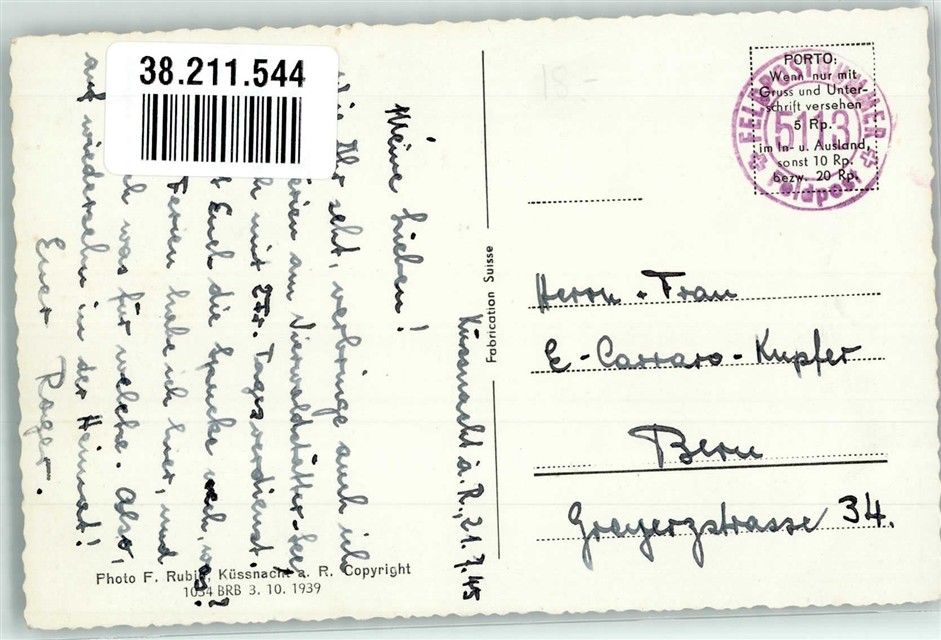 38.211.544
Küssnacht a. R., 21.7.45
Meine Lieben!
Wie Ihr seht, verbringe auch ich
Ferien am Vierwaldstätter-See,
mit 2 Fr. Tagesverdienst.
Euch die Spucke weh, was?
Ferien habe ich hier, und
was für welche. Also,
auf wiedersehn in der Heimat!
Euer Roger.
Photo F. Rubi, Küssnacht a. R. Copyright
1034 BRB 3. 10. 1939
Fabrication Suisse
PORTO:
Wenn nur mit
Gruss und Unter-
schrift versehen
5 Rp.
im In- u. Ausland,
sonst 10 Rp.
bezw. 20 Rp.
FELDPOSTNUMMER
5113
Feldpost
Herrn + Frau
E. Carraro-Kupfer
Bern
Greyerzstrasse 34.